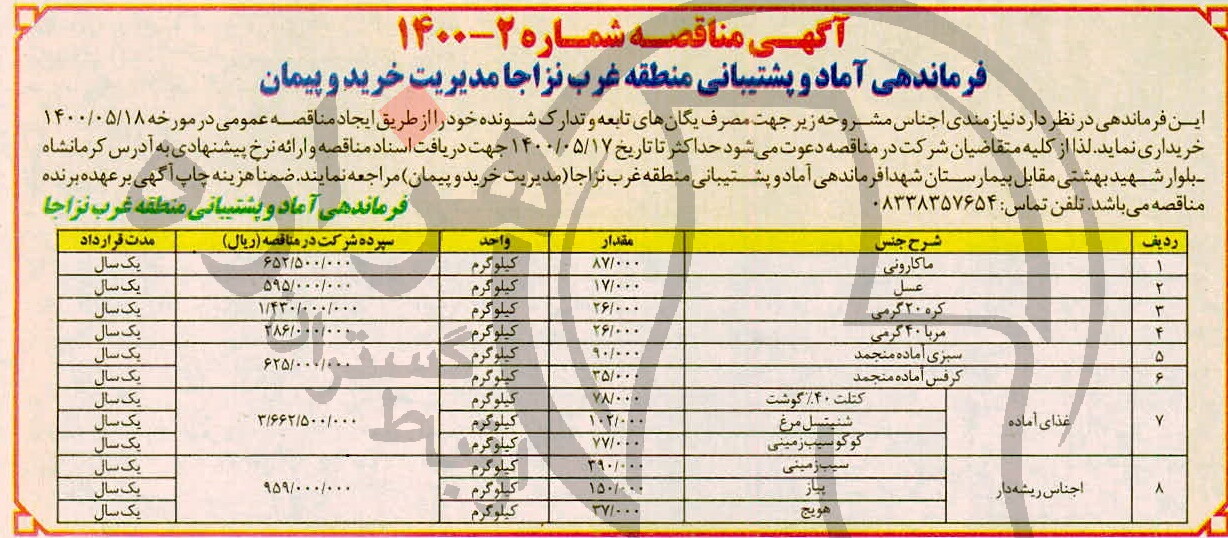 آگهی مناقصه شماره ۲-۱۴۰۰
فرماندهی آماد و پشتیبانی منطقه غرب نزاجا مدیریت خرید و پیمان
این فرماندهی در نظر دارد نیازمندی اجناس مشروحه زیر جهت مصرف یگان‌های تابعه و تدارک شونده خود را از طریق ایجاد مناقصه عمومی در مورخه ۱۴۰۰/۰۵/۱۸
خریداری نماید. لذا از کلیه متقاضیان شرکت در مناقصه دعوت می‌شود حداکثر تا تاریخ ۱۴۰۰/۰۵/۱۷ جهت دریافت اسناد مناقصه و ارائه نرخ پیشنهادی به آدرس کرمانشاه
ـ بلوار شهید بهشتی مقابل بیمارستان شهدا فرماندهی آماد و پشتیبانی منطقه غرب نزاجا (مدیریت خرید و پیمان) مراجعه نمایند. ضمنا هزینه چاپ آگهی بر عهده برنده
مناقصه می‌باشد. تلفن تماس: ۰۸۳۳۸۳۵۷۶۵۴
فرماندهی آماد و پشتیبانی منطقه غرب نزاجا
ردیف شرح جنس مقدار واحد سپرده شرکت در مناقصه (ریال) مدت قرارداد
۱ ماکارونی ۸۷/۰۰۰ کیلوگرم ۶۵۲/۵۰۰/۰۰۰ یک سال
۲ عسل ۱۷/۰۰۰ کیلوگرم ۵۹۵/۰۰۰/۰۰۰ یک سال
۳ کره ۲۰ گرمی ۲۶/۰۰۰ کیلوگرم ۱/۴۳۰/۰۰۰/۰۰۰ یک سال
۴ مربا ۴۰ گرمی ۲۶/۰۰۰ کیلوگرم ۲۸۶/۰۰۰/۰۰۰ یک سال
۵ سبزی آماده منجمد ۹۰/۰۰۰ کیلوگرم ۶۲۵/۰۰۰/۰۰۰ یک سال
۶ کرفس آماده منجمد ۳۵/۰۰۰ کیلوگرم یک سال
۷ غذای آماده کتلت ۴۰٪ گوشت ۷۸/۰۰۰ کیلوگرم ۳/۶۶۲/۵۰۰/۰۰۰ یک سال
شنیتسل مرغ ۱۰۲/۰۰۰ کیلوگرم یک سال
کوکو سیب‌زمینی ۷۷/۰۰۰ کیلوگرم یک سال
۸ اجناس ریشه‌دار سیب‌زمینی ۲۹۰/۰۰۰ کیلوگرم ۹۵۹/۰۰۰/۰۰۰ یک سال
پیاز ۱۵۰/۰۰۰ کیلوگرم یک سال
هویج ۳۷/۰۰۰ کیلوگرم یک سال
هزاره
گستران
ارتباط